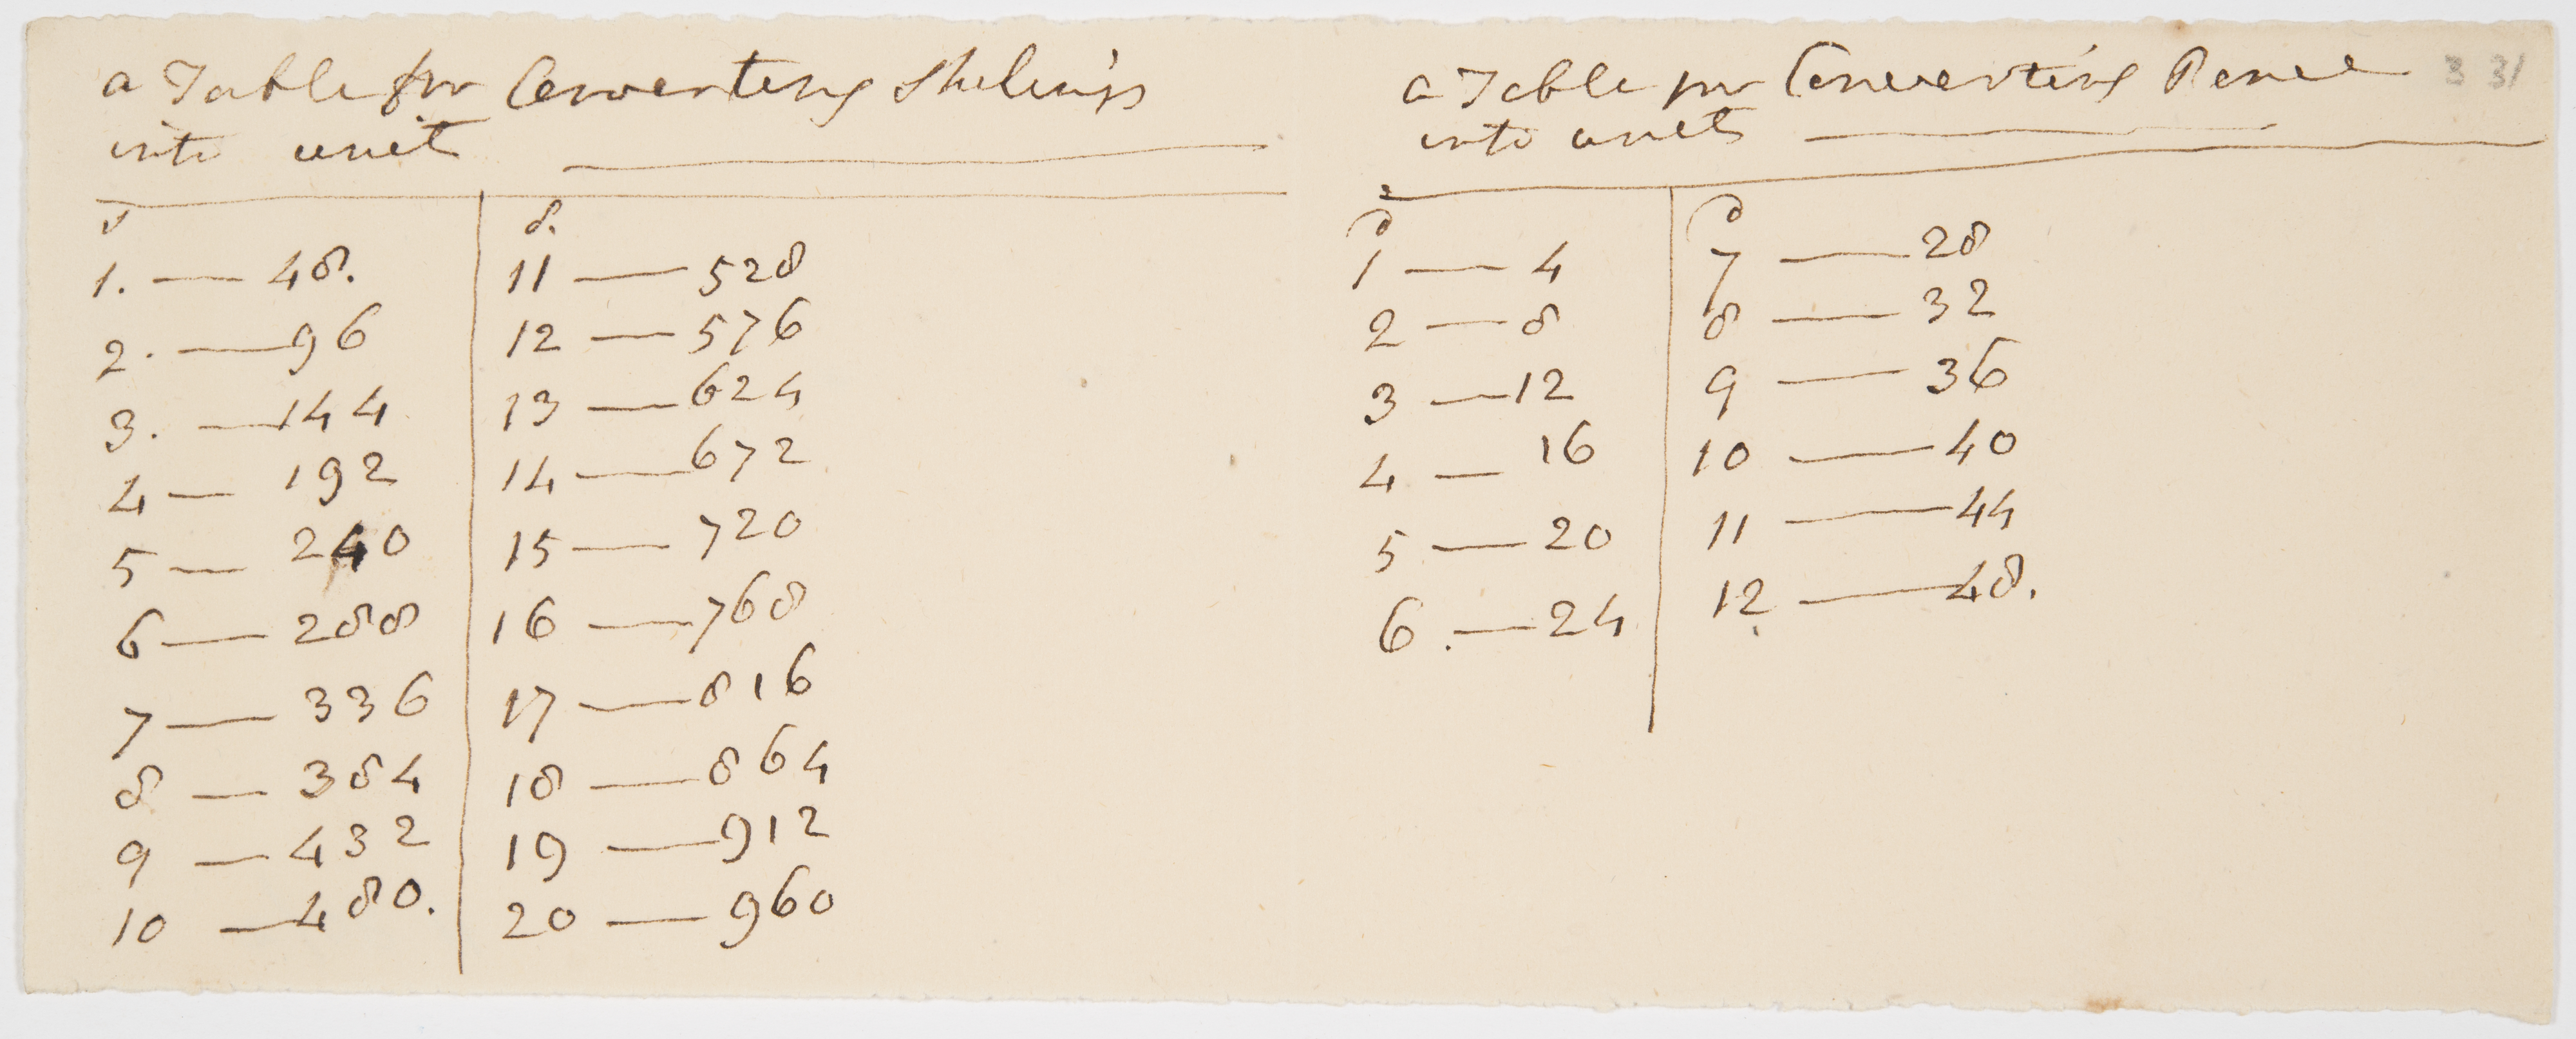 a Table for Converting Shelings
into unit
s
1. — 48.
2. — 96
3. — 144
4 — 192
5 — 240
6 — 288
7 — 336
8 — 384
9 — 432
10 — 480.
s.
11 — 528
12 — 576
13 — 624
14 — 672
15 — 720
16 — 768
17 — 816
18 — 864
19 — 912
20 — 960
a Table for Converting Pence
into units
d
1 — 4
2 — 8
3 — 12
4 — 16
5 — 20
6 . — 24
d
7 — 28
8 — 32
9 — 36
10 — 40
11 — 44
12 — 48.
3 31